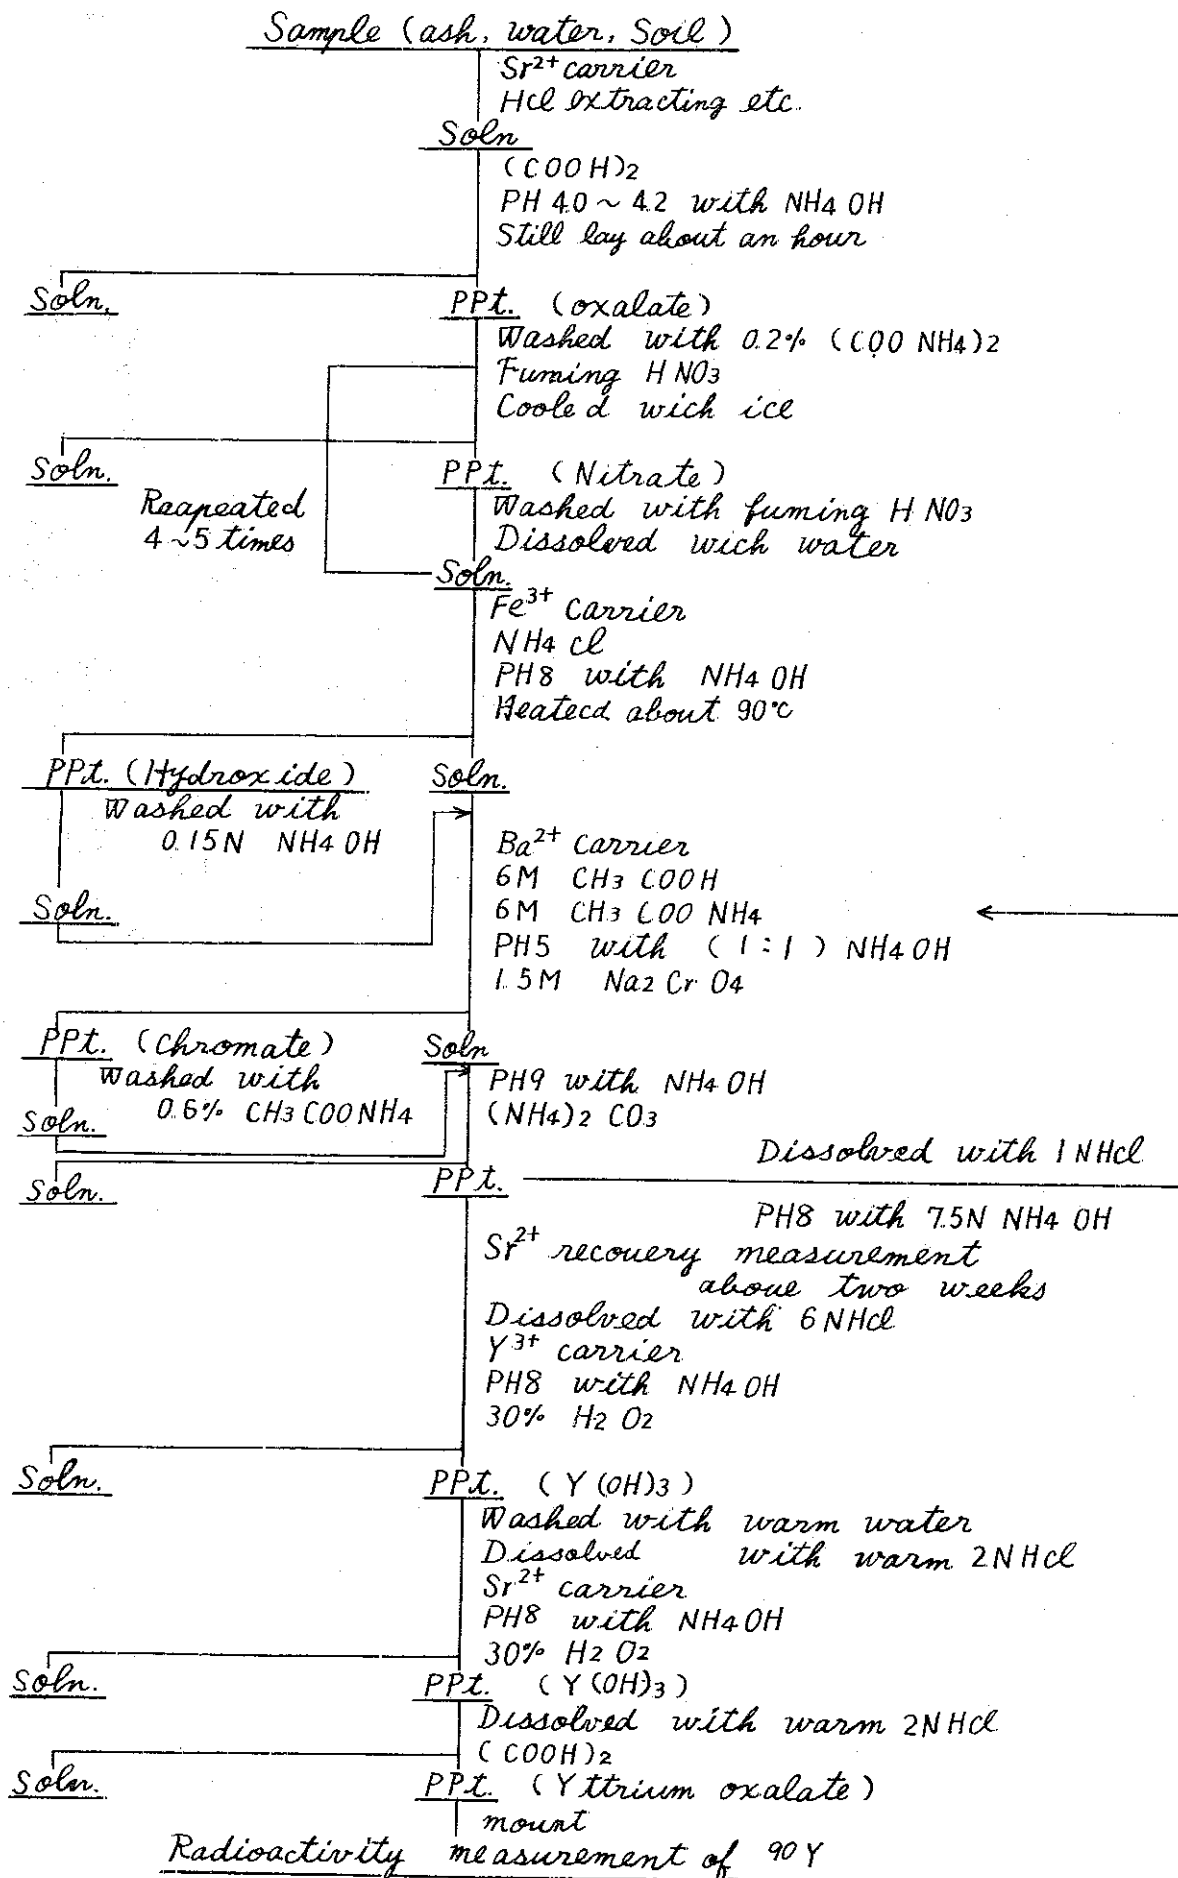 Sample (ash, water, Soil)
Sr2+ carrier
Hcl extracting etc.
Soln
(COOH)2
PH 4.0 ~ 4.2 with NH4 OH
Still lay about an hour
Soln.
PPt. (oxalate)
Washed with 0.2% (COO NH4)2
Fuming H NO3
Cooled wich ice
Soln.
PPt. (Nitrate)
Reapeated
4 ~ 5 times
Washed with fuming H NO3
Dissolved wich water
Soln.
Fe3+ carrier
NH4 cl
PH8 with NH4 OH
Heatecd about 90°c
PPt. (Hydroxide)
Washed with
0.15N NH4 OH
Soln.
Soln.
Ba2+ carrier
6M CH3 COOH
6M CH3 COO NH4
PH5 with (1:1) NH4 OH
1.5M Na2 Cr O4
PPt. (chromate)
Washed with
0.6% CH3 COO NH4
Soln.
Soln
PH9 with NH4 OH
(NH4)2 CO3
Soln.
PPt.
Dissolved with 1 NHcl
PH8 with 7.5N NH4 OH
Sr2+ recouery measurement
aboue two weeks
Dissolved with 6 NHcl
Y3+ carrier
PH8 with NH4 OH
30% H2 O2
Soln.
PPt. (Y (OH)3)
Washed with warm water
Dissolved with warm 2NHcl
Sr2+ carrier
PH8 with NH4 OH
30% H2 O2
Soln.
PPt. (Y (OH)3)
Dissolved with warm 2NHcl
(COOH)2
Soln.
PPt. (Yttrium oxalate)
mount
Radioactivity measurement of 90Y